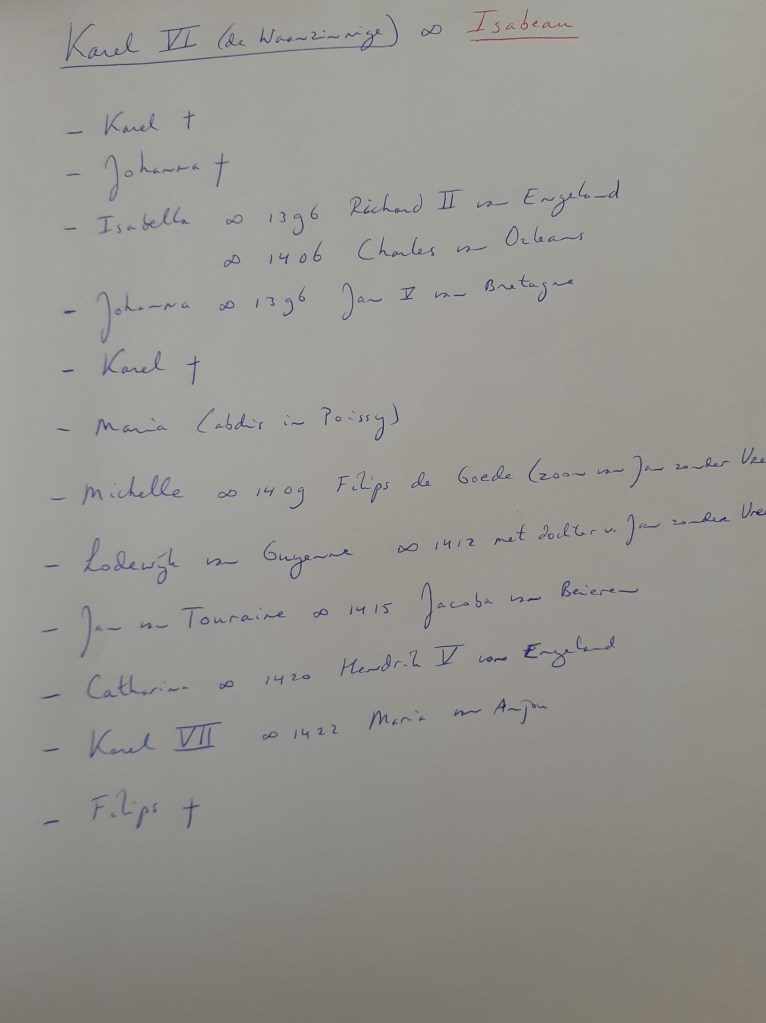 Karel VI (de Waanzinnige) ∞ Isabeau
- Karel †
- Johanna †
- Isabella ∞ 1396 Richard II van Engeland
∞ 1406 Charles van Orleans
- Johanna ∞ 1396 Jan V van Bretagne
- Karel †
- Maria (abdis in Poissy)
- Michelle ∞ 1409 Filips de Goede (zoon van Jan zonder Vre
- Lodewijk van Guyenne ∞ 1412 met dochter v. Jan zonder Vre
- Jan van Touraine ∞ 1415 Jacoba van Beieren
- Catharina ∞ 1420 Hendrik V van Engeland
- Karel VII ∞ 1422 Maria van Anjou
- Filips †